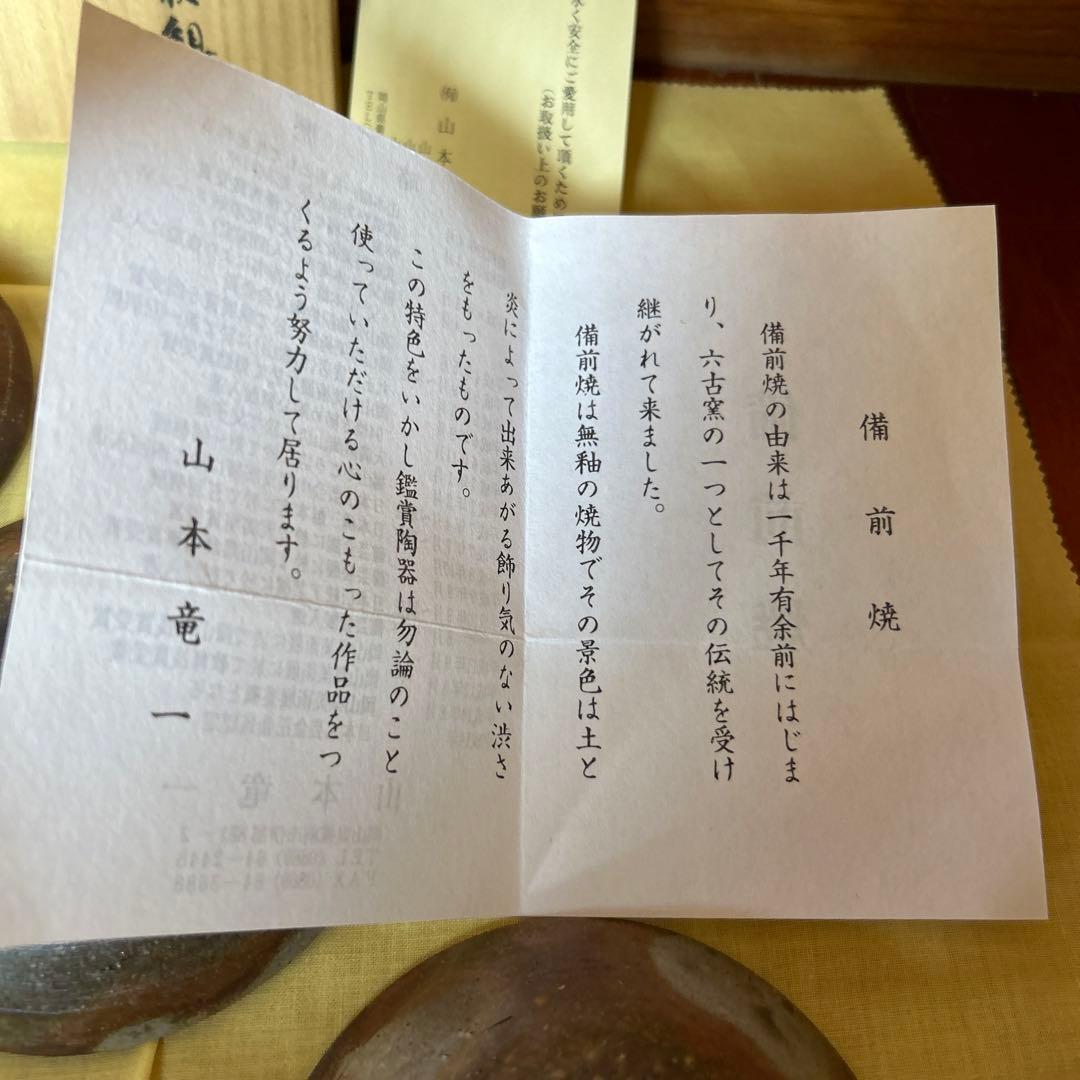 備前焼
備前焼の由来は一千年有余前にはじま
り、六古窯の一つとしてその伝統を受け
継がれて来ました。
備前焼は無釉の焼物でその景色は土と
炎によって出来あがる飾り気のない渋さ
をもったものです。
この特色をいかし鑑賞陶器は勿論のこと
使っていただける心のこもった作品をつ
くるよう努力して居ります。
山本竜一
く安全にご愛用して頂くため
(お取扱い上のお願
㈲山本
岡山県
組